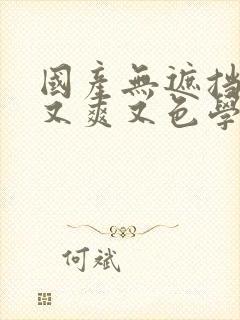 國產無遮挡
又爽又色學
何斌